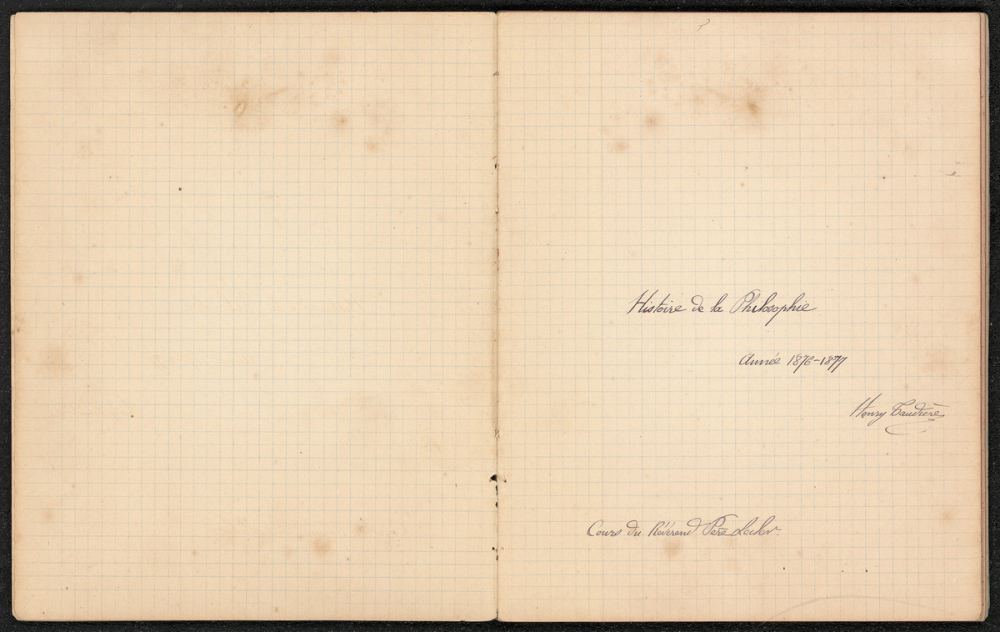 Histoire de la Philosophie
Année 1876-1877
Henry Taudière
Cours du Révérend Père Lahr.